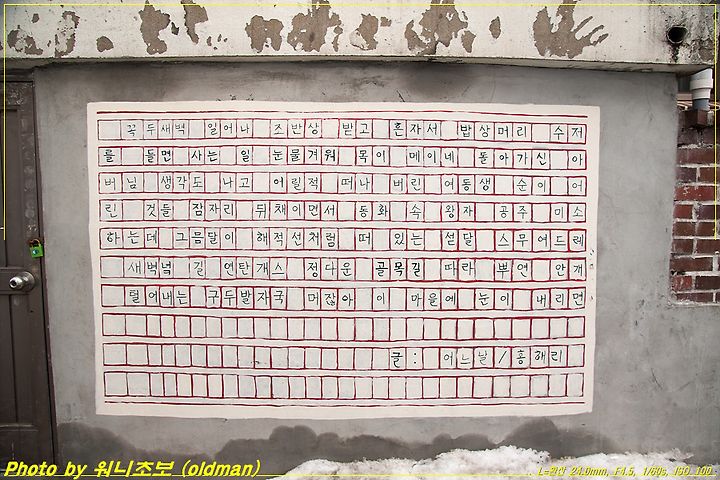 꼭두새벽 일어나 조반상 받고 혼자서 밥상머리 수저
를 들면 사는 일 눈물겨워 목이 메이네 돌아가신 아
버님 생각도 나고 어릴적 떠나 버린 여동생 순이 어
린 것들 잠자리 뒤채이면서 동화 속 왕자 공주 미소
하는데 그믐달이 해적선처럼 떠 있는 섣달 스무여드레
새벽녘 길 연탄개스 정다운 골목길 따라 뿌연 안개
털어내는 구두발자국 머잖아 이 마을에 눈이 내리면
글: 어느날/홍해리
Photo by 워니초보 (oldman)
24.0mm, F4.5, 1/60s, ISO 100